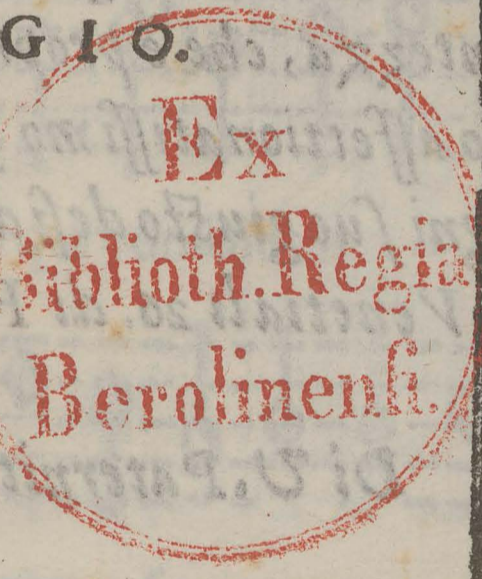 GIO.
Ex
Biblioth. Regia
Berolinenſi.